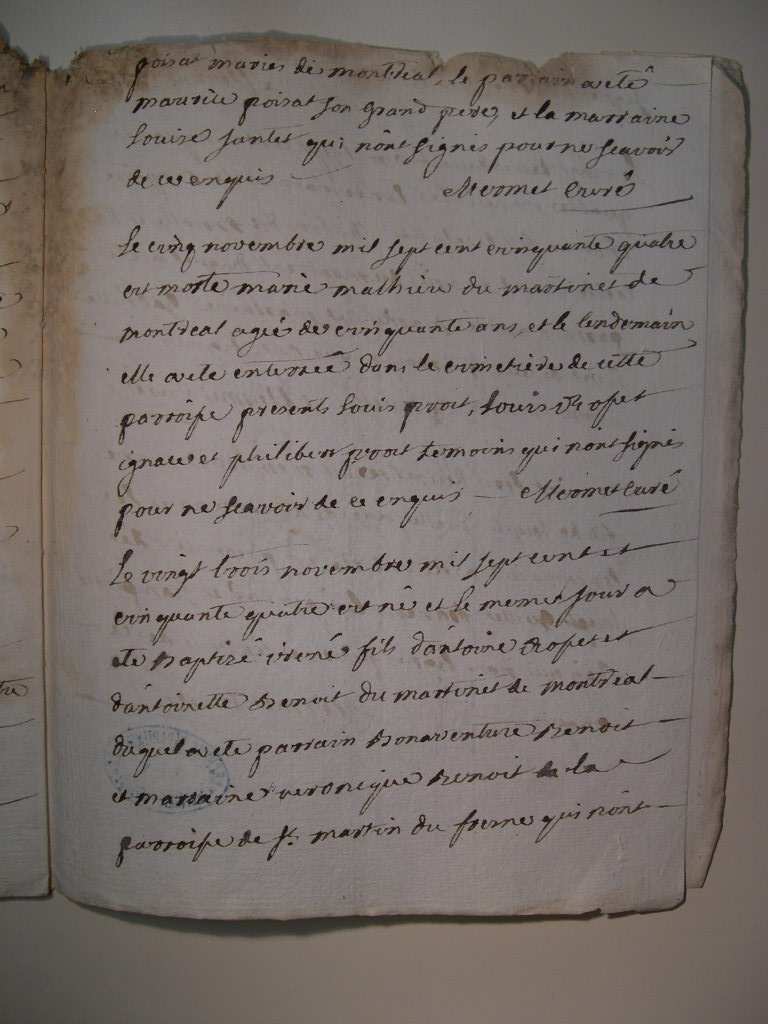 poisat mariés de montreal, le parrain a eté
maurice poisat son grand pere, et la marraine
Louise jantet qui n'ont signés pour ne sçavoir
de ce enquis Mermet Curé
Le cinq novembre mil sept cent cinquante quatre
est morte marie mathieu du martinet de
montreal agée de cinquante ans, et le lendemain
elle a eté enterrée dans le cimetière de cette
parroisse presents Louis proit, Louis Ropet
ignace et philibert proit temoins qui n'ont signés
pour ne sçavoir de ce enquis Mermet Curé
Le vingt trois novembre mil sept cent et
cinquante quatre est né et le meme jour a
eté baptizé irené fils d'antoine Ropet et
d'antoinette Benoit du martinet de montreal
duquel a eté parrain Bonaventure Benoit
et marraine veronique Benoit la
parroisse de st. martin du fresne qui n'ont
tre